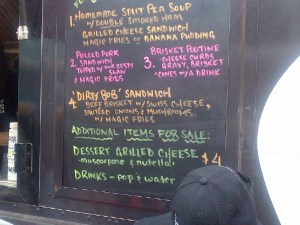 1. Homemade Split Pea Soup
w/ Double Smoked Ham
Grilled Cheese Sandwich
Magic Fries or Banana Pudding
2. Pulled Pork
Sandwich
Topped w/ our zesty
slaw
& Magic Fries
3. Brisket Poutine
- Cheese Curds
Gravy, Brisket
- Comes w/ a Drink
4. 'Dirty Bob' Sandwich
Beef Brisket w/ Swiss Cheese,
Sauteed Onions & Mushrooms
w/ Magic Fries
Additional Items For Sale:
Dessert Grilled Cheese
- mascarpone & nutella $4
Drinks - pop & water